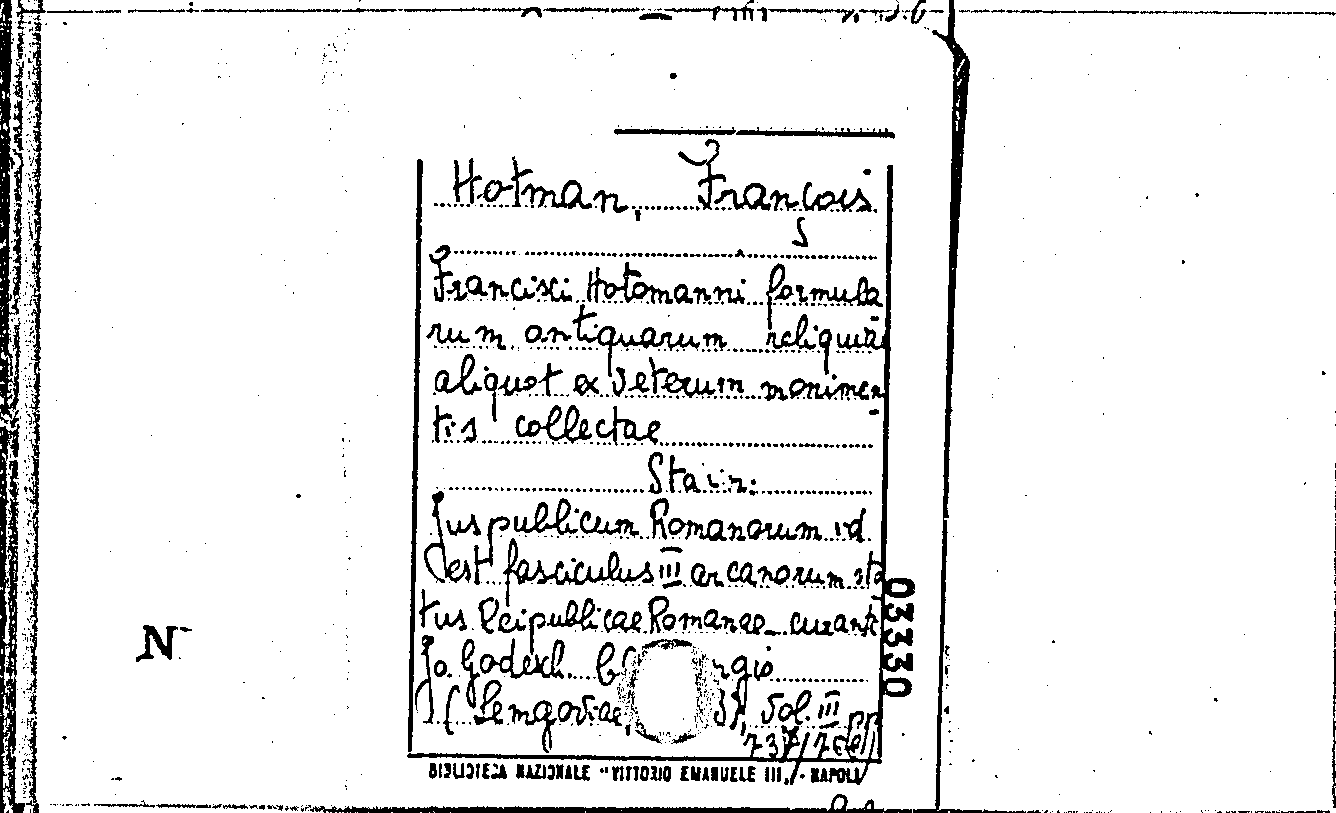 Hotman, François
Francisci Hotomanni formula
rum antiquarum reliquiae
aliquot ex veterum monimen-
tis collectae
Sta in:
Jus publicum Romanorum id
est fasciculus III arcanorum sta
tus Reipublicae Romanae curante
Jo. Godexh.
(Lemgoviae, Vol. III
03330
N
BIBLIOTECA NAZIONALE "VITTORIO EMANUELE III," - NAPOLI